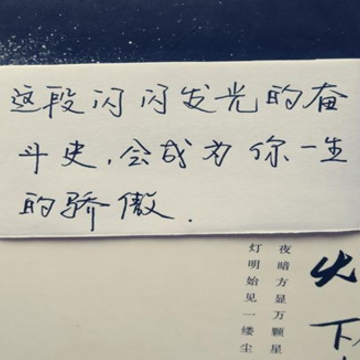 这段闪闪发光的奋
斗史,会成为你一生
的骄傲.
夜暗方显万颗星
灯明始见一缕尘
火
下